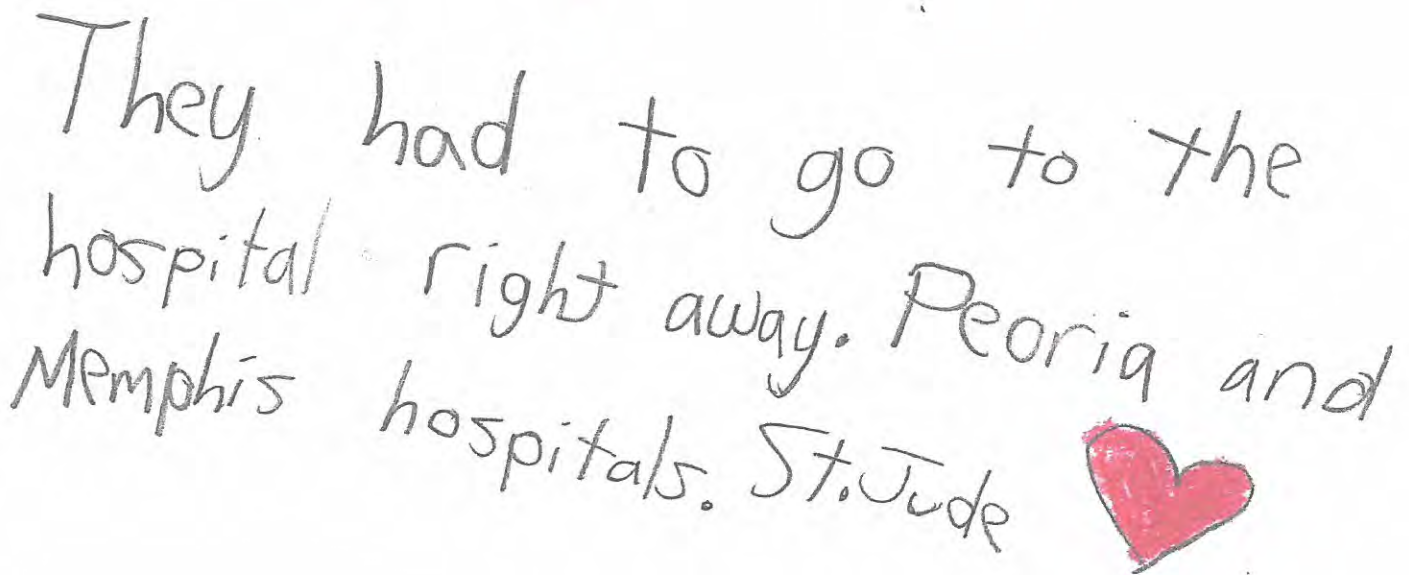 They had to go to the
hospital right away. Peoria and
Memphis hospitals. St. Jude